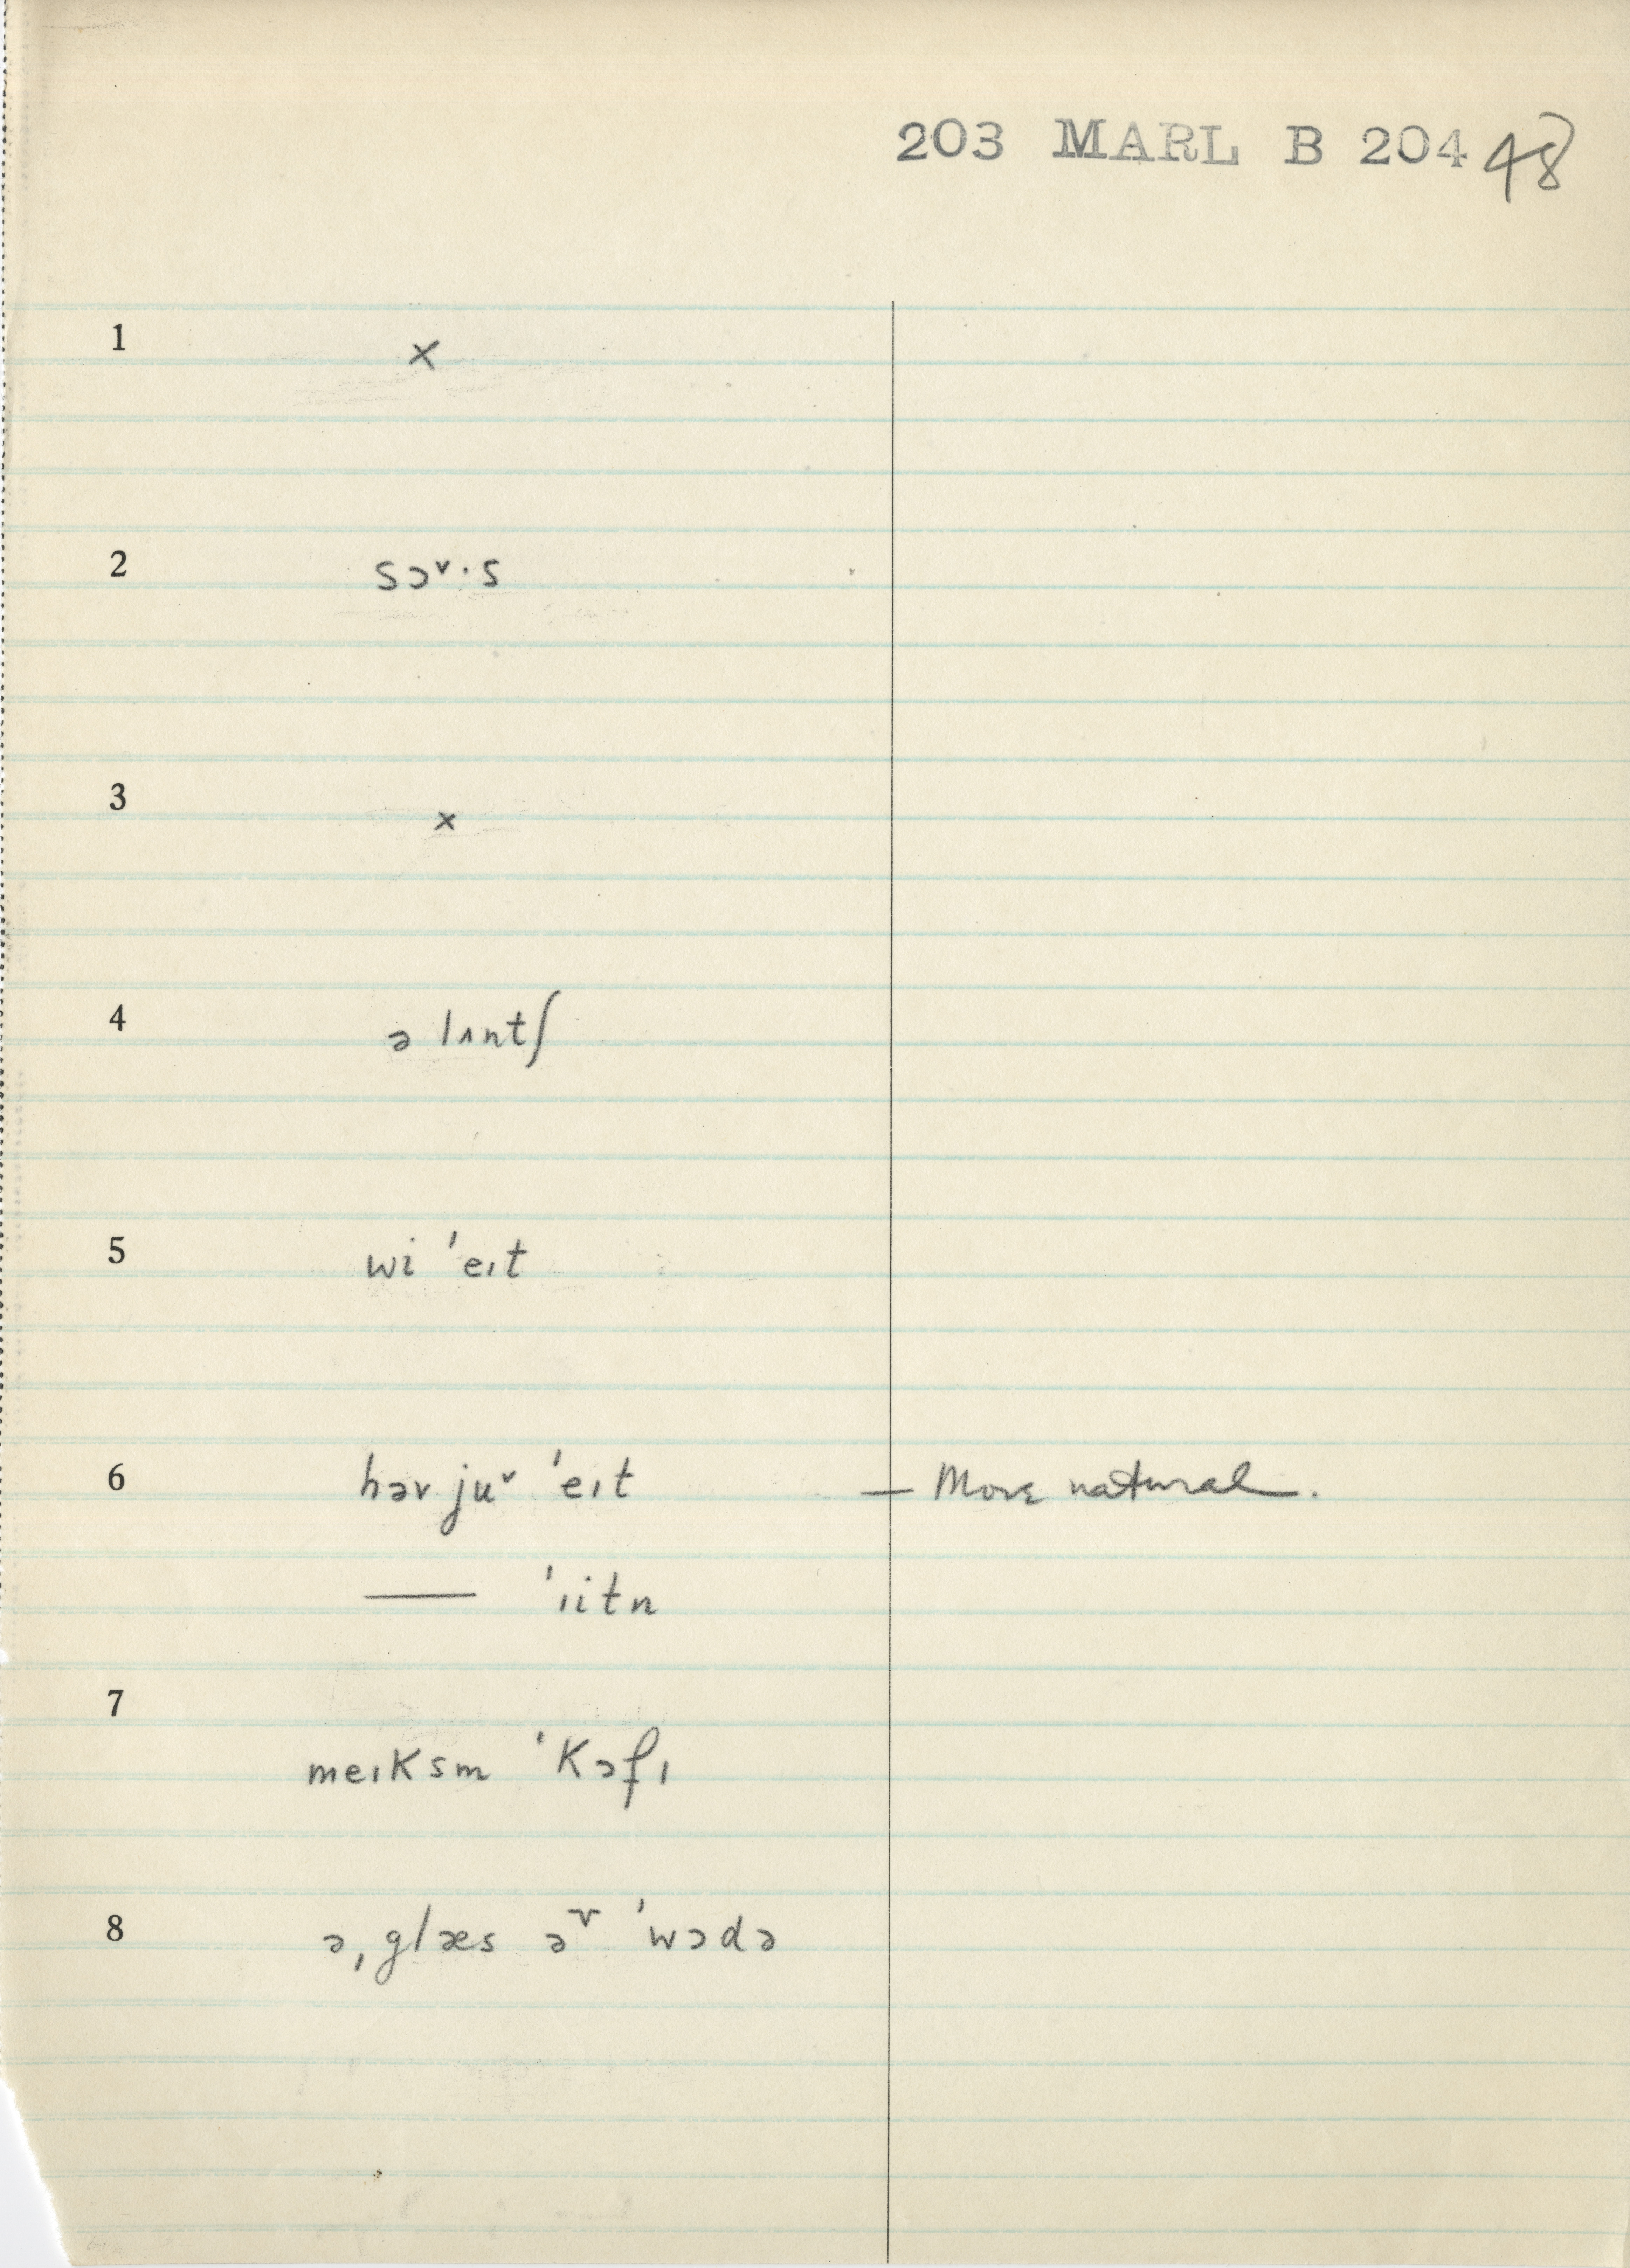 203 MARL B 204 48
1 ×
2 sɔ˅·s
3 ×
4 ə lʌntʃ
5 wi ˈeɪt
6 həv ju˅ ˈeɪt — More natural.
—— ˈɪitn
7
meɪksm ˈkɔfɪ
8 ə ˌglæs əᵛ ˈwɔdə